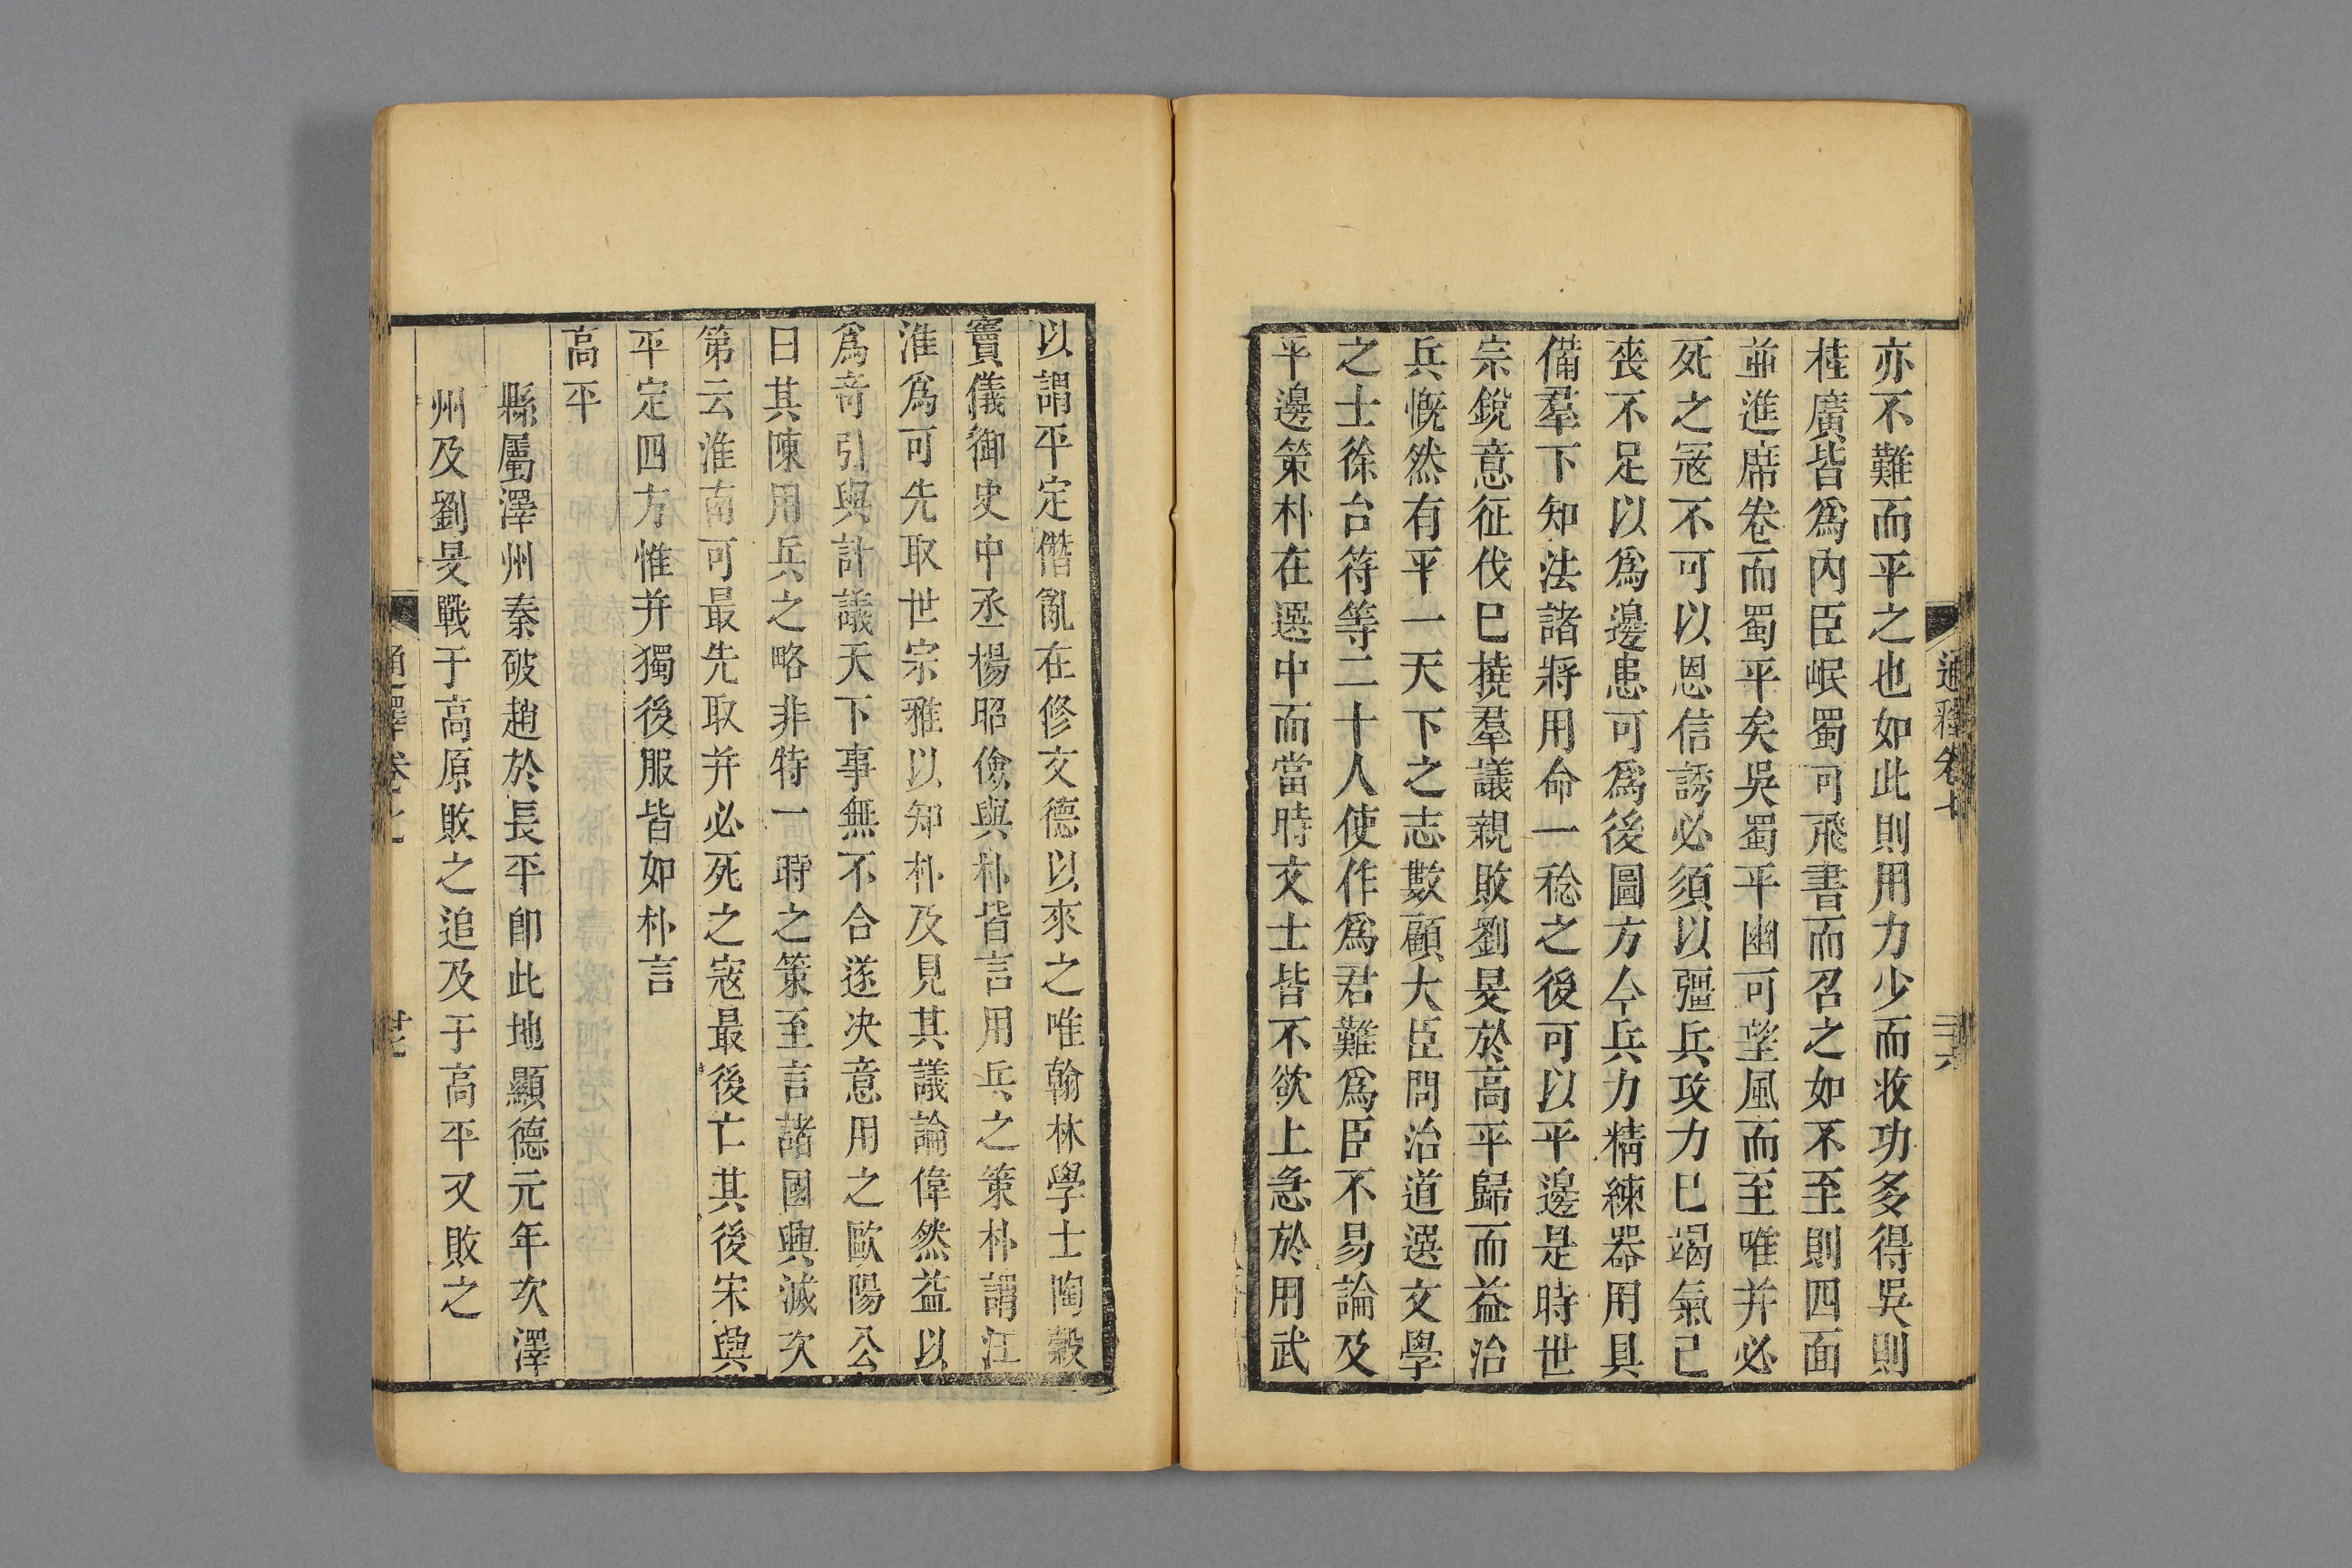 亦不難而平之也如此則用力少而收功多得吳則
桂廣皆爲內臣岷蜀可飛書而召之如不至則四面
並進席卷而蜀平矣吳蜀平幽可望風而至唯并必
死之寇不可以恩信誘必須以彊兵攻力已竭氣已
喪不足以爲邊患可爲後圖方今兵力精練器用具
備羣下知法諸將用命一稔之後可以平邊是時世
宗銳意征伐已撓羣議親敗劉旻於高平歸而益治
兵慨然有平一天下之志數顧大臣問治道選文學
之士徐台符等二十人使作爲君難爲臣不易論及
平邊策朴在選中而當時文士皆不欲上急於用武
以謂平定僭亂在修文德以來之唯翰林學士陶穀
竇儀御史中丞楊昭儉與朴皆言用兵之策朴謂江
淮爲可先取世宗雅以知朴及見其議論偉然益以
爲竒引與計議天下事無不合遂决意用之歐陽公
曰其陳用兵之略非特一時之策至言諸國興滅次
第云淮南可最先取并必死之寇最後亡其後宋興
平定四方惟并獨後服皆如朴言
高平
縣屬澤州秦破趙於長平卽此地顯德元年次澤
州及劉旻戰于高原敗之追及于高平又敗之
通釋卷七